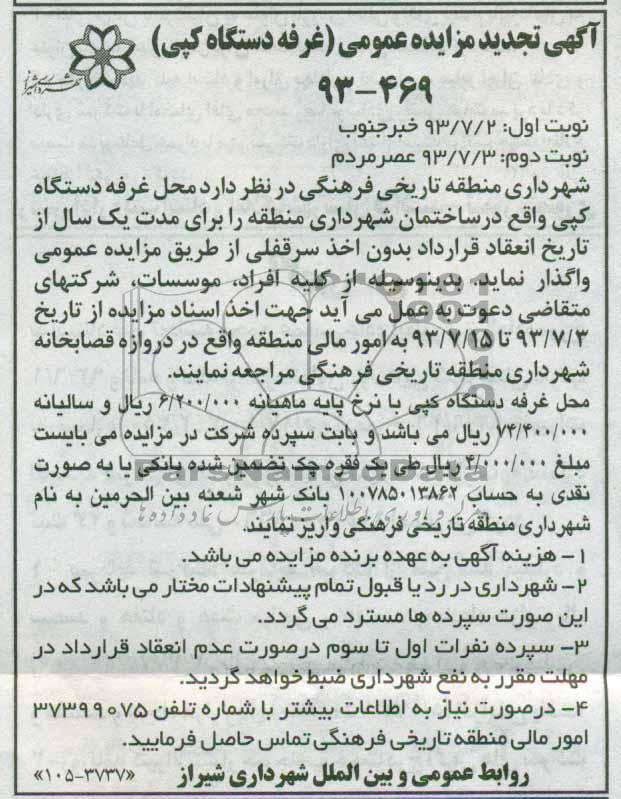 آگهی تجدید مزایده عمومی (غرفه دستگاه کپی)
۹۳-۴۶۹
نوبت اول: ۹۳/۷/۲ خبرجنوب
نوبت دوم: ۹۳/۷/۳ عصرمردم
شهرداری منطقه تاریخی فرهنگی در نظر دارد محل غرفه دستگاه
کپی واقع درساختمان شهرداری منطقه را برای مدت یک سال از
تاریخ انعقاد قرارداد بدون اخذ سرقفلی از طریق مزایده عمومی
واگذار نماید. بدینوسیله از کلیه افراد، موسسات، شرکتهای
متقاضی دعوت به عمل می آید جهت اخذ اسناد مزایده از تاریخ
۹۳/۷/۳ تا ۹۳/۷/۱۵ به امور مالی منطقه واقع در دروازه قصابخانه
شهرداری منطقه تاریخی فرهنگی مراجعه نمایند.
محل غرفه دستگاه کپی با نرخ پایه ماهیانه ۶/۲۰۰/۰۰۰ ریال و سالیانه
۷۴/۴۰۰/۰۰۰ ریال می باشد و بابت سپرده شرکت در مزایده می بایست
مبلغ ۴/۰۰۰/۰۰۰ ریال طی یک فقره چک تضمین شده بانکی یا به صورت
نقدی به حساب ۱۰۰۷۸۵۰۱۳۸۶۲ بانک شهر شعبه بین الحرمین به نام
شهرداری منطقه تاریخی فرهنگی واریز نمایند.
۱- هزینه آگهی به عهده برنده مزایده می باشد.
۲- شهرداری در رد یا قبول تمام پیشنهادات مختار می باشد که در
این صورت سپرده ها مسترد می گردد.
۳- سپرده نفرات اول تا سوم درصورت عدم انعقاد قرارداد در
مهلت مقرر به نفع شهرداری ضبط خواهد گردید.
۴- درصورت نیاز به اطلاعات بیشتر با شماره تلفن ۳۷۳۹۹۰۷۵
امور مالی منطقه تاریخی فرهنگی تماس حاصل فرمایید.
روابط عمومی و بین الملل شهرداری شیراز «۱۰۵-۳۷۳۷»
ParsNamadData